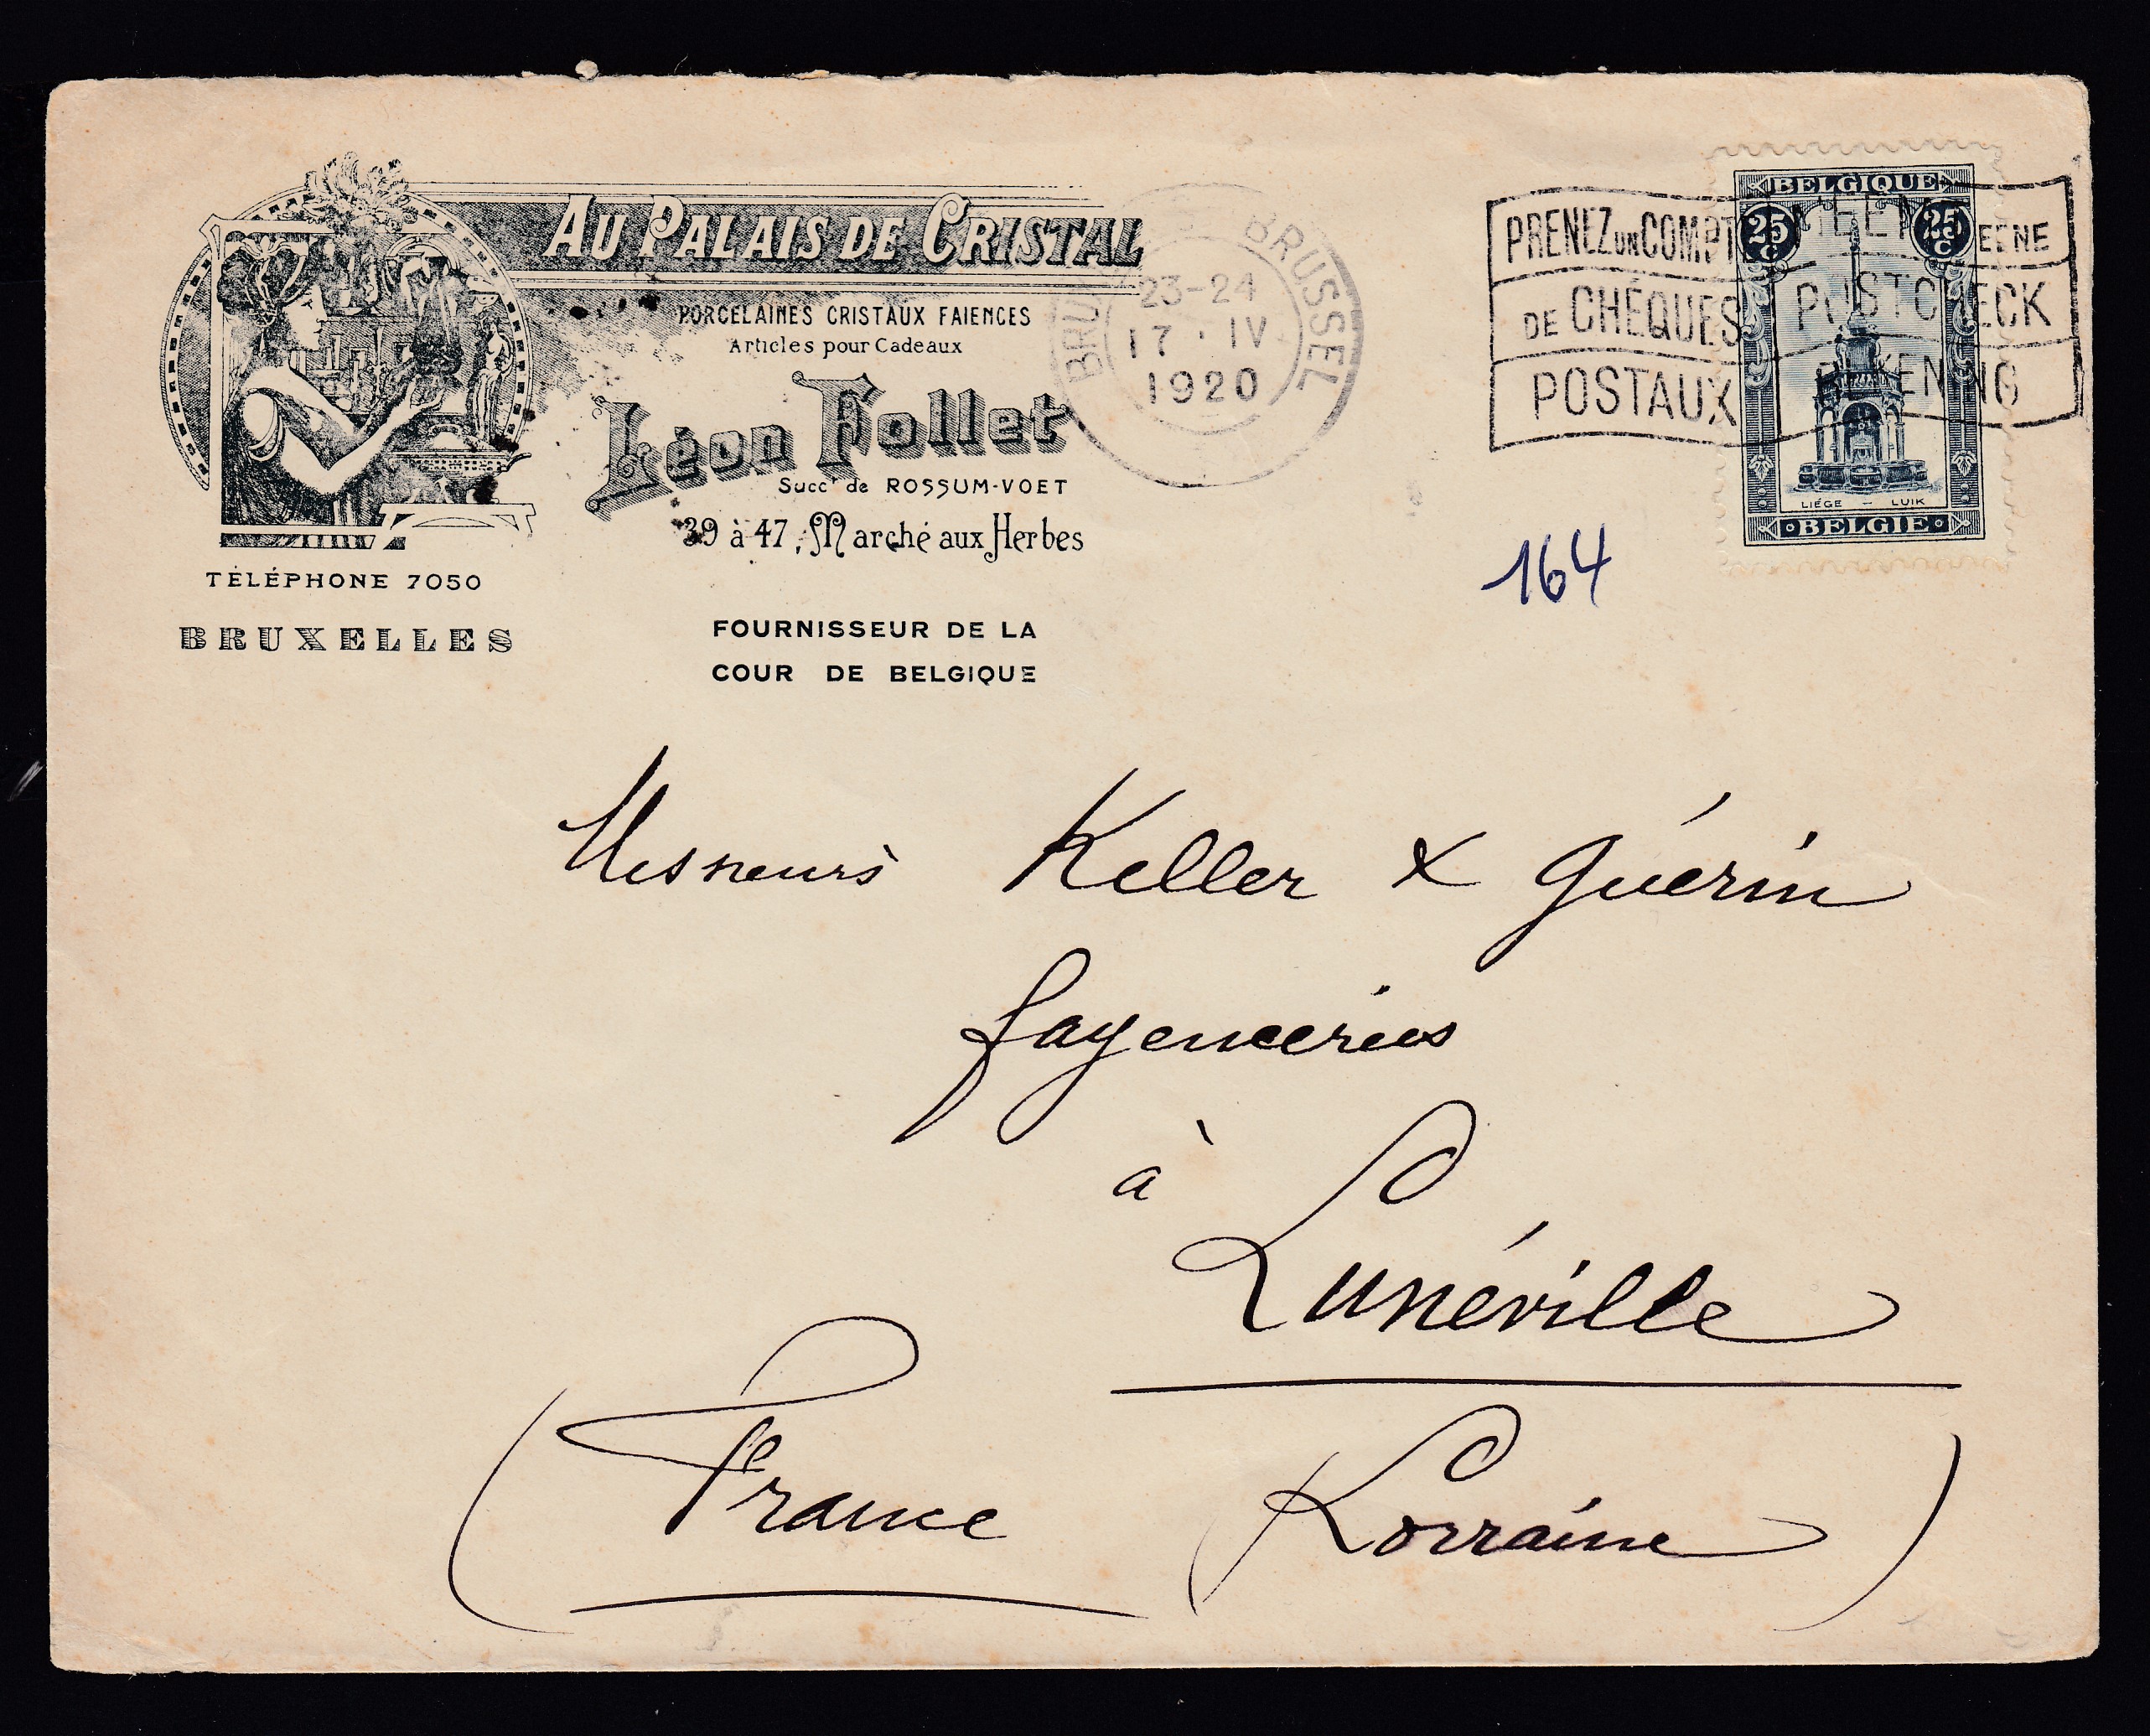 AU PALAIS DE CRISTAL
PORCELAINES CRISTAUX FAIENCES
Articles pour Cadeaux
Léon Follet
Succr de ROSSUM-VOET
39 à 47, Marché aux Herbes
TÉLÉPHONE 7050
BRUXELLES
FOURNISSEUR DE LA
COUR DE BELGIQUE
BRUSSEL
23-24
17 · IV
1920
PRENEZ UN COMPT
DE CHÈQUES
POSTAUX
NEEM EENE
POSTCHECK
REKENING
BELGIQUE
25 C 25 C
LIÉGE - LUIK
BELGIË
164
Messieurs Keller & Guérin
fayenceries
à
Lunéville
(France (Lorraine)